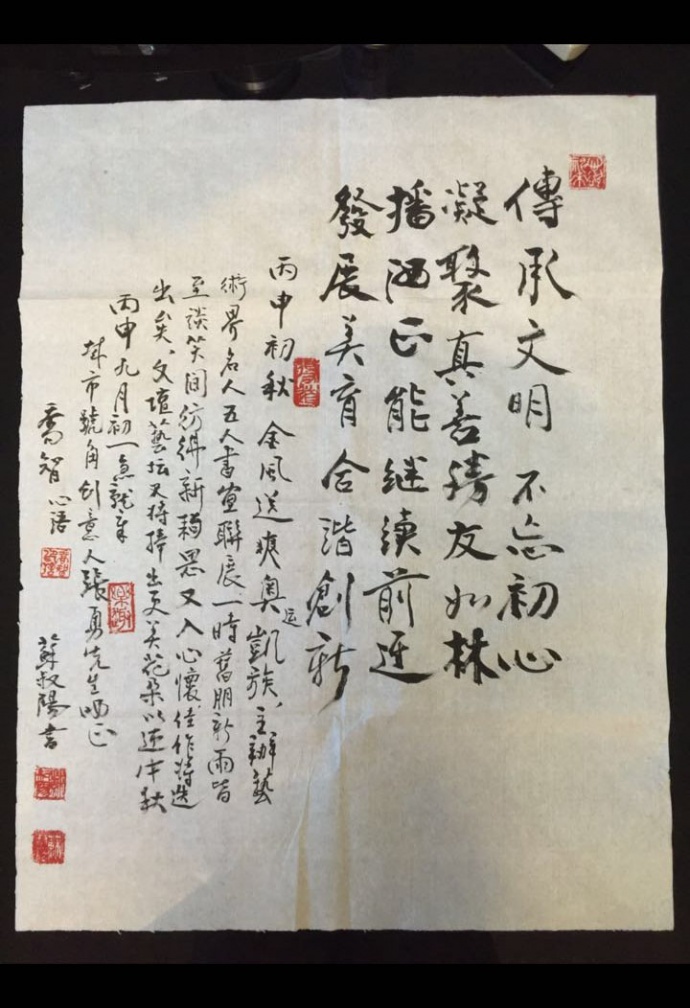 傳承文明 不忘初心
凝聚真善勝友如林
播洒正能继续前迈
發展美育合諧創新
丙申初秋 金風送爽奥运凱旋、主辦藝
術界名人五人書畫聯展一時舊朋新雨皆
至談笑间仿佛新穎思又入心懷佳作将迭
出矣、文壇藝坛又将捧出更美花朵以迎中秋
丙申九月初一
城市號角創意人張勇先生哂正
喬智心语
蘇叔陽書